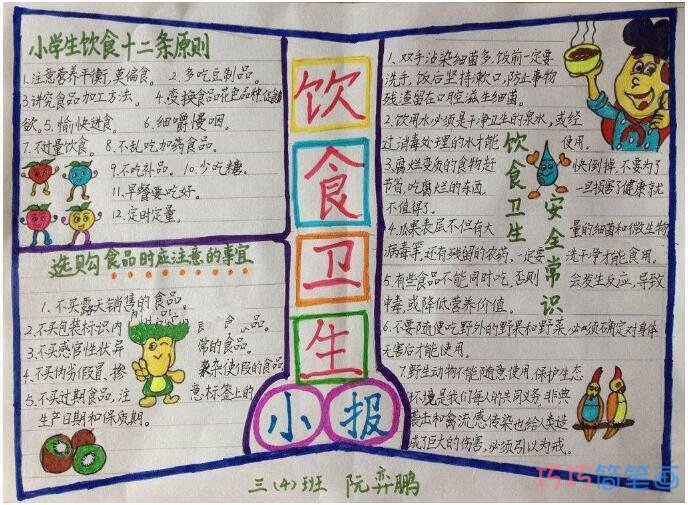 小学生饮食十二条原则
1.注意营养平衡,莫偏食。 2.多吃豆制品。
3.讲究食品加工方法。 4.变换食品花色品种,促食
欲。5.愉快进食。 6.细嚼慢咽。
7.不过量饮食。 8.不乱吃加药食品。
9.不吃补品。 10.少吃糖。
11.早餐要吃好。
12.定时定量。
选购食品时应注意的事宜
1.不买露天销售的食品
2.不买包装标识内
品。
3.不买感官性状异 常的食品。
4.不买伪劣假冒、掺 杂使假的食品
5.不买过期食品,注 意标签上的
生产日期和保质期。
饮食卫生
小报
1.双手沾染细菌多,饭前一定要
洗手,饭后坚持漱口,防止事物
残渣留在口腔滋生细菌。
2.饮用水必须是干净卫生的泉水,或经
过消毒处理的水才能 使用。
3.腐烂变质的食物赶 快倒掉,不要为了
节省,吃腐烂的东西, 一旦损害了健康就
不值得了。
4.瓜果表层不但有大 量的细菌和微生物
病毒等,还有残留的农药,一定要 洗干净才能食用。
5.有些食品不能同时吃,否则 会发生反应,导致
中毒,或降低营养价值。
6.不要随便吃野外的野果和野菜,必须确定对身体
无害后才能使用。
7.野生动物不能随意使用,保护生态
环境是我们每人的共同义务,非典
袭击和禽流感传染也给人类造
成了巨大的伤害,必须引以为戒。
饮食卫生
安全常识
三(4)班 阮弈鹏
巧巧简笔画